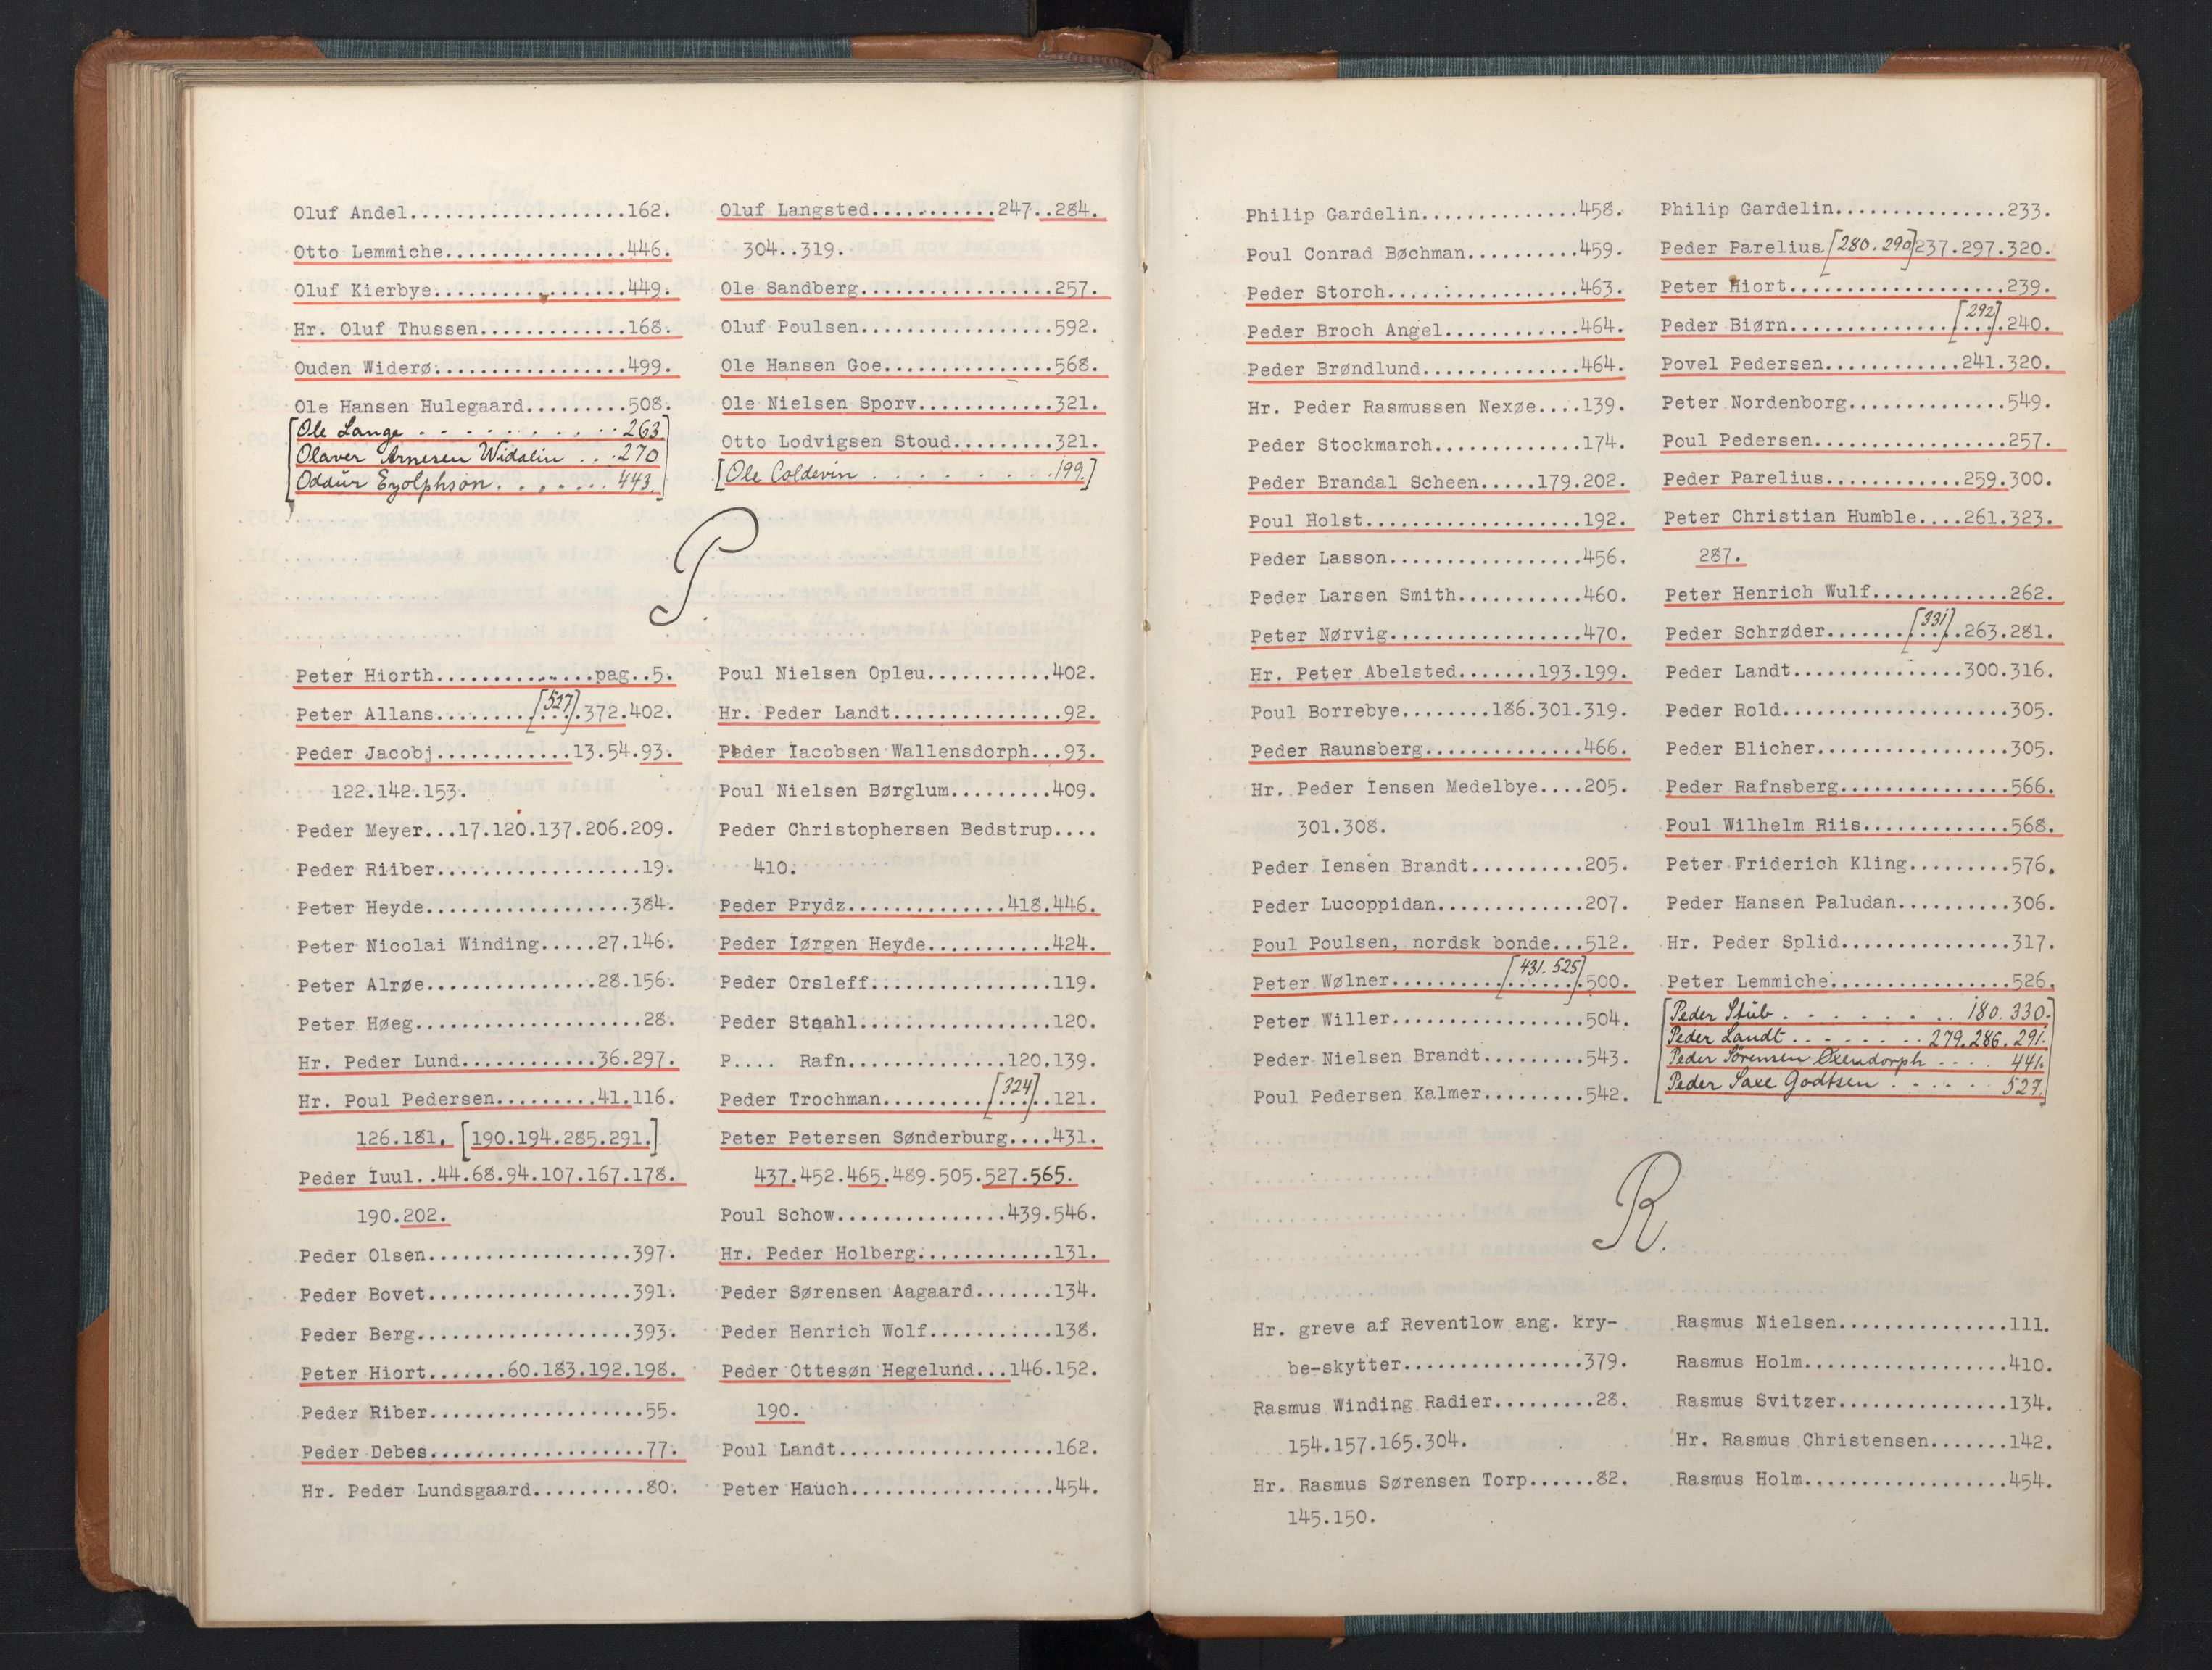 Oluf Andel...................162.
Otto Lemmiche................446.
Oluf Kierbye.................449.
Hr. Oluf Thussen.............168.
Ouden Widerø.................499.
Ole Hansen Hulegaard.........508.
[Ole Lange . . . . . . . . . . . 263
Olaver Arnesen Widalin . . . 270
Oddür Eyolphson . . . . . . . 443.]
Oluf Langsted...........247..284.
304..319.
Ole Sandberg.................257.
Oluf Poulsen.................592.
Ole Hansen Goe...............568.
Ole Nielsen Sporv............321.
Otto Lodvigsen Stoud.........321.
[Ole Coldevin . . . . . . . . . . . 199.]
P.
Peter Hiorth..............pag..5.
Peter Allans.........[527].372.402.
Peder Jacobj............13.54.93.
122.142.153.
Peder Meyer...17.120.137.206.209.
Peder Riiber..................19.
Peter Heyde..................384.
Peter Nicolai Winding.....27.146.
Peter Alrøe...............28.156.
Peter Høeg....................28.
Hr. Peder Lund............36.297.
Hr. Poul Pedersen.........41.116.
126.181. [190.194.285.291.]
Peder Iuul..44.68.94.107.167.178.
190.202.
Peder Olsen..................397.
Peder Bovet..................391.
Peder Berg...................393.
Peter Hiort.......60.183.192.198.
Peder Riber...................55.
Peder Debes...................77.
Hr. Peder Lundsgaard..........80.
Poul Nielsen Opleu...........402.
Hr. Peder Landt...............92.
Peder Iacobsen Wallensdorph...93.
Poul Nielsen Børglum.........409.
Peder Christophersen Bedstrup....
410.
Peder Prydz..............418.446.
Peder Iørgen Heyde...........424.
Peder Orsleff................119.
Peder Staahl.................120.
P.... Rafn..............120.139.
Peder Trochman.........[324]..121.
Peter Petersen Sønderburg....431.
437.452.465.489.505.527.565.
Poul Schow...............439.546.
Hr. Peder Holberg............131.
Peder Sørensen Aagaard.......134.
Peder Henrich Wolf...........138.
Peder Ottesøn Hegelund...146.152.
190.
Poul Landt...................162.
Peter Hauch..................454.
Philip Gardelin..............458.
Poul Conrad Bøchman..........459.
Peder Storch.................463.
Peder Broch Angel............464.
Peder Brøndlund..............464.
Hr. Peder Rasmussen Nexøe....139.
Peder Stockmarch.............174.
Peder Brandal Scheen.....179.202.
Poul Holst...................192.
Peder Lasson.................456.
Peder Larsen Smith...........460.
Peter Nørvig.................470.
Hr. Peter Abelsted.......193.199.
Poul Borrebye........186.301.319.
Peder Raunsberg..............466.
Hr. Peder Iensen Medelbye....205.
301.308.
Peder Iensen Brandt..........205.
Peder Lucoppidan.............207.
Poul Poulsen, nordsk bonde...512.
Peter Wølner..........[431.525].500.
Peter Willer.................504.
Peder Nielsen Brandt.........543.
Poul Pedersen Kalmer.........542.
Philip Gardelin...............233.
Peder Parelius [280.290]237.297.320.
Peter Hiort...................239.
Peder Biørn..............[292].240.
Povel Pedersen............241.320.
Peter Nordenborg..............549.
Poul Pedersen.................257.
Peder Parelius............259.300.
Peter Christian Humble....261.323.
287.
Peter Henrich Wulf............262.
Peder Schrøder.......[331].263.281.
Peder Landt...............300.316.
Peder Rold....................305.
Peder Blicher.................305.
Peder Rafnsberg...............566.
Poul Wilhelm Riis.............568.
Peter Friderich Kling.........576.
Peder Hansen Paludan..........306.
Hr. Peder Splid...............317.
Peter Lemmiche................526.
[Peder Stüb . . . . . . . . 180.330.
Peder Landt . . . . . . . 279.286.291.
Peder Sörensen Oxendorph . . . . 441.
Peder Saxe Godtsen . . . . . . 527.]
R.
Hr. greve af Reventlow ang. kry-
be-skytter................379.
Rasmus Winding Radier.........28.
154.157.165.304.
Hr. Rasmus Sørensen Torp......82.
145.150.
Rasmus Nielsen...............111.
Rasmus Holm..................410.
Rasmus Svitzer...............134.
Hr. Rasmus Christensen.......142.
Rasmus Holm..................454.